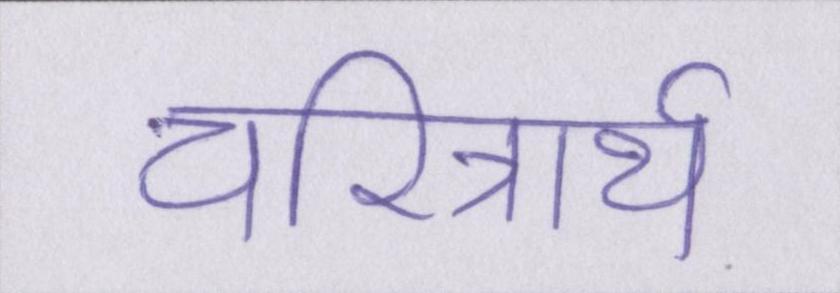 चरित्रार्थ